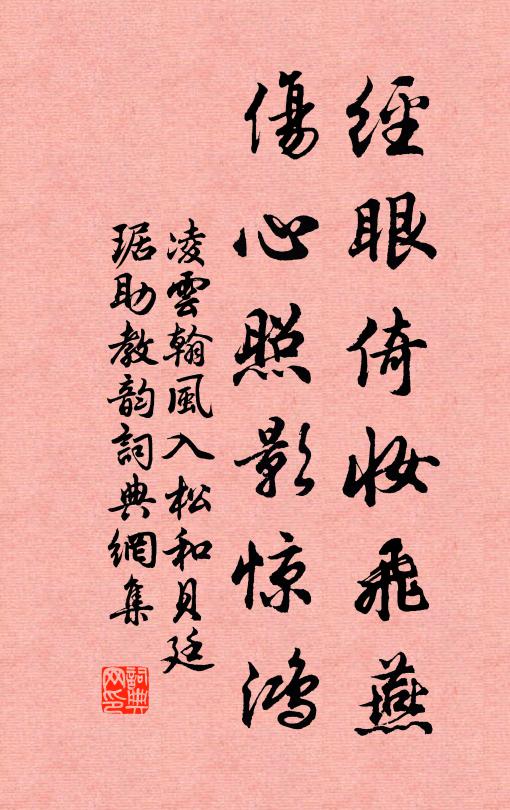 經眼倚妝飛燕
傷心照影惊鴻
凌雲翰風入松和貝廷
琚助教韵詞典網集
詞典网印